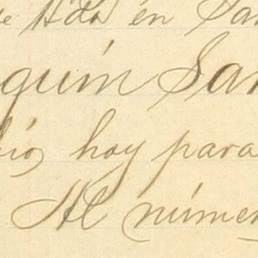 en San
quín San
hoy para
Al númer